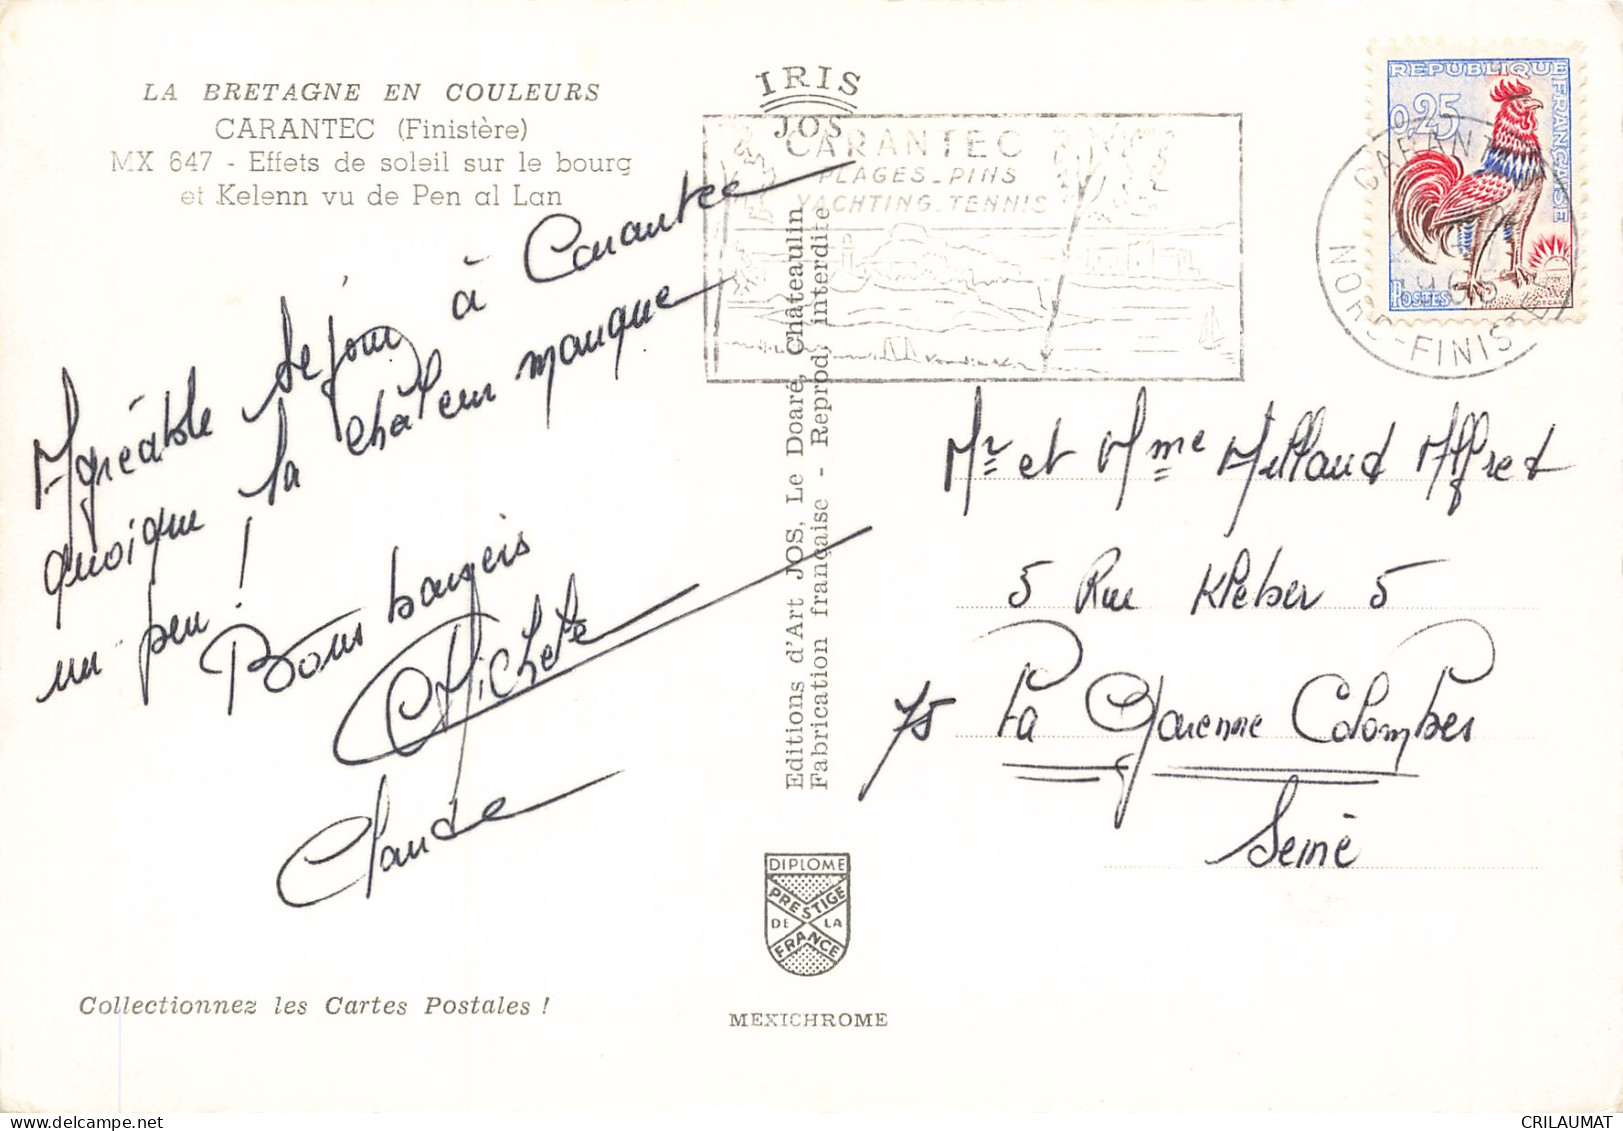 LA BRETAGNE EN COULEURS
CARANTEC (Finistère)
MX 647 - Effets de soleil sur le bourg
et Kelenn vu de Pen al Lan
Agréable séjour à Carantec
quoique la chaleur manque
un peu !
Bons baisers
Michele
Claude
Collectionnez les Cartes Postales !
IRIS
JOS
Editions d'Art JOS, Le Doaré, Châteaulin
Fabrication française - Reprod. interdite
DIPLOME
PRESTIGE
DE LA
FRANCE
MEXICHROME
CARANTEC
PLAGES_PINS
YACHTING_TENNIS
REPUBLIQUE FRANÇAISE
0,25
POSTES
CARANTEC
NORD-FINISTERE
Mr et Mme Millaud Alfred
5 Rue Kleber 5
75 La Garenne Colombes
Seine
CRILAUMAT